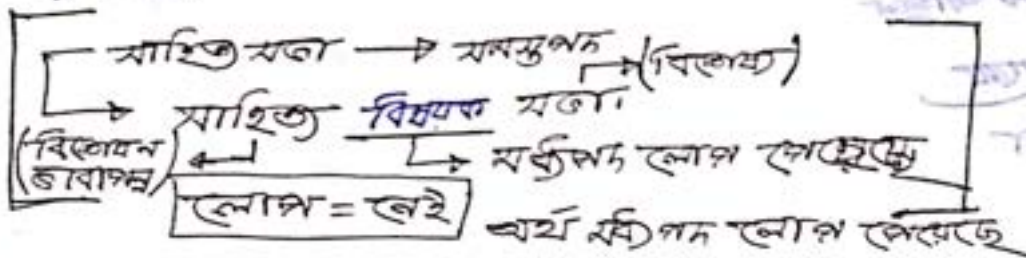 সাহিত্য সভা → সমস্তপদ
(বিশেষ্য)
→ সাহিত্য বিষয়ক সভা।
(বিশেষন ভাবাপন্ন)
→ মধ্যপদ লোপ পেয়েছে
লোপ = নেই
অর্থ মধ্যপদ লোপ পেয়েছে